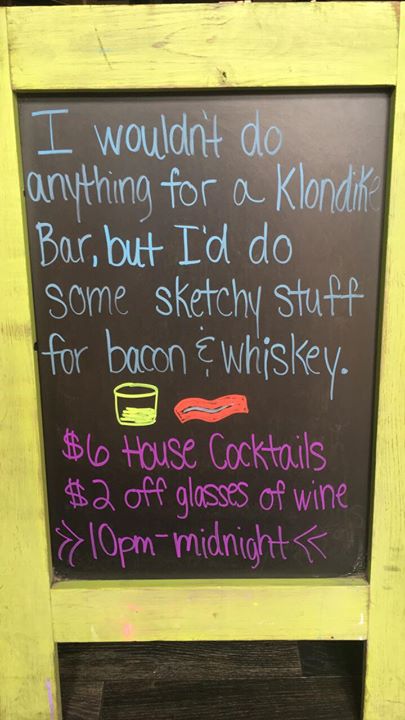 I wouldn't do
anything for a Klondike
Bar, but I'd do
some sketchy stuff
for bacon & whiskey.
$6 House Cocktails
$2 off glasses of wine
>> 10pm-midnight <<